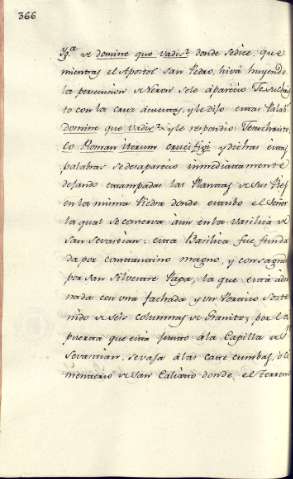 366
Yg.ª de domine quo vadis? donde se dice, que
mientras el Apostol San Pedro, hiva huyendo
la persecucion de Neron se le apareció Jesuchris
to con la cruz acuestas, y le dijo estas Palabˢ
domine quo vadis? y le respondio:
Roman iterum crucifigi y dichas estas
palabras se desapareció inmediatamente
dejando estampadas las Plantas de sus Pies
en la misma Piedra donde estubo el Señor
la qual se conserva aun en la Basilica de
San Sevastian: esta Basilica fue funda
da por constantino magno, y consagrada
por San Silvestre Papa, la que está ador
nada con una fachada y un Portico soste
nido de seis columnas de Granito; por la
puerta que está junto á la Capilla de Sⁿ
Sevastian, se vaja á las catacumbas, ó Ce
menterio de San Calisto donde, el Terreno